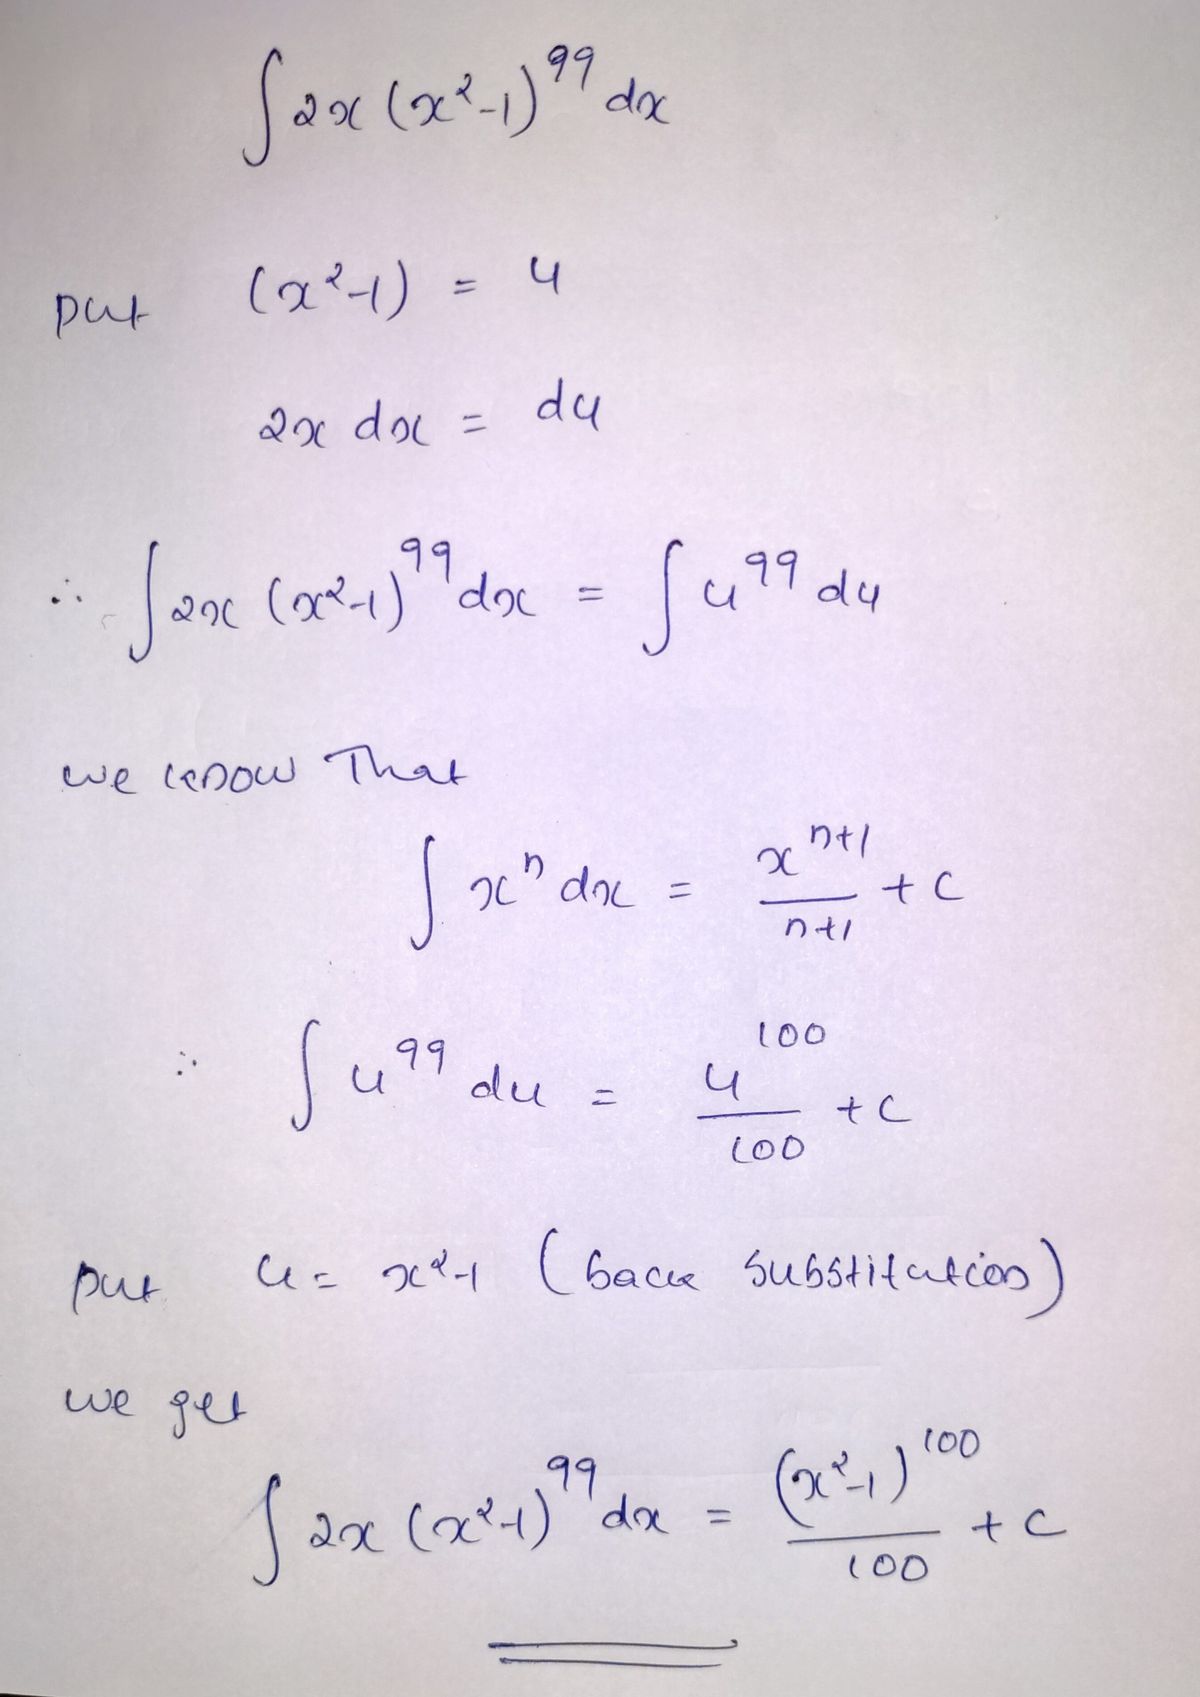 ∫ 2x (x²-1)⁹⁹ dx
put (x²-1) = u
2x dx = du
∴ ∫ 2x (x²-1)⁹⁹ dx = ∫ u⁹⁹ du
we know That
∫ xⁿ dx = xⁿ⁺¹/n+1 + c
∴ ∫ u⁹⁹ du = u¹⁰⁰/100 + c
put u = x²-1 (back substitution)
we get
∫ 2x (x²-1)⁹⁹ dx = (x²-1)¹⁰⁰/100 + c